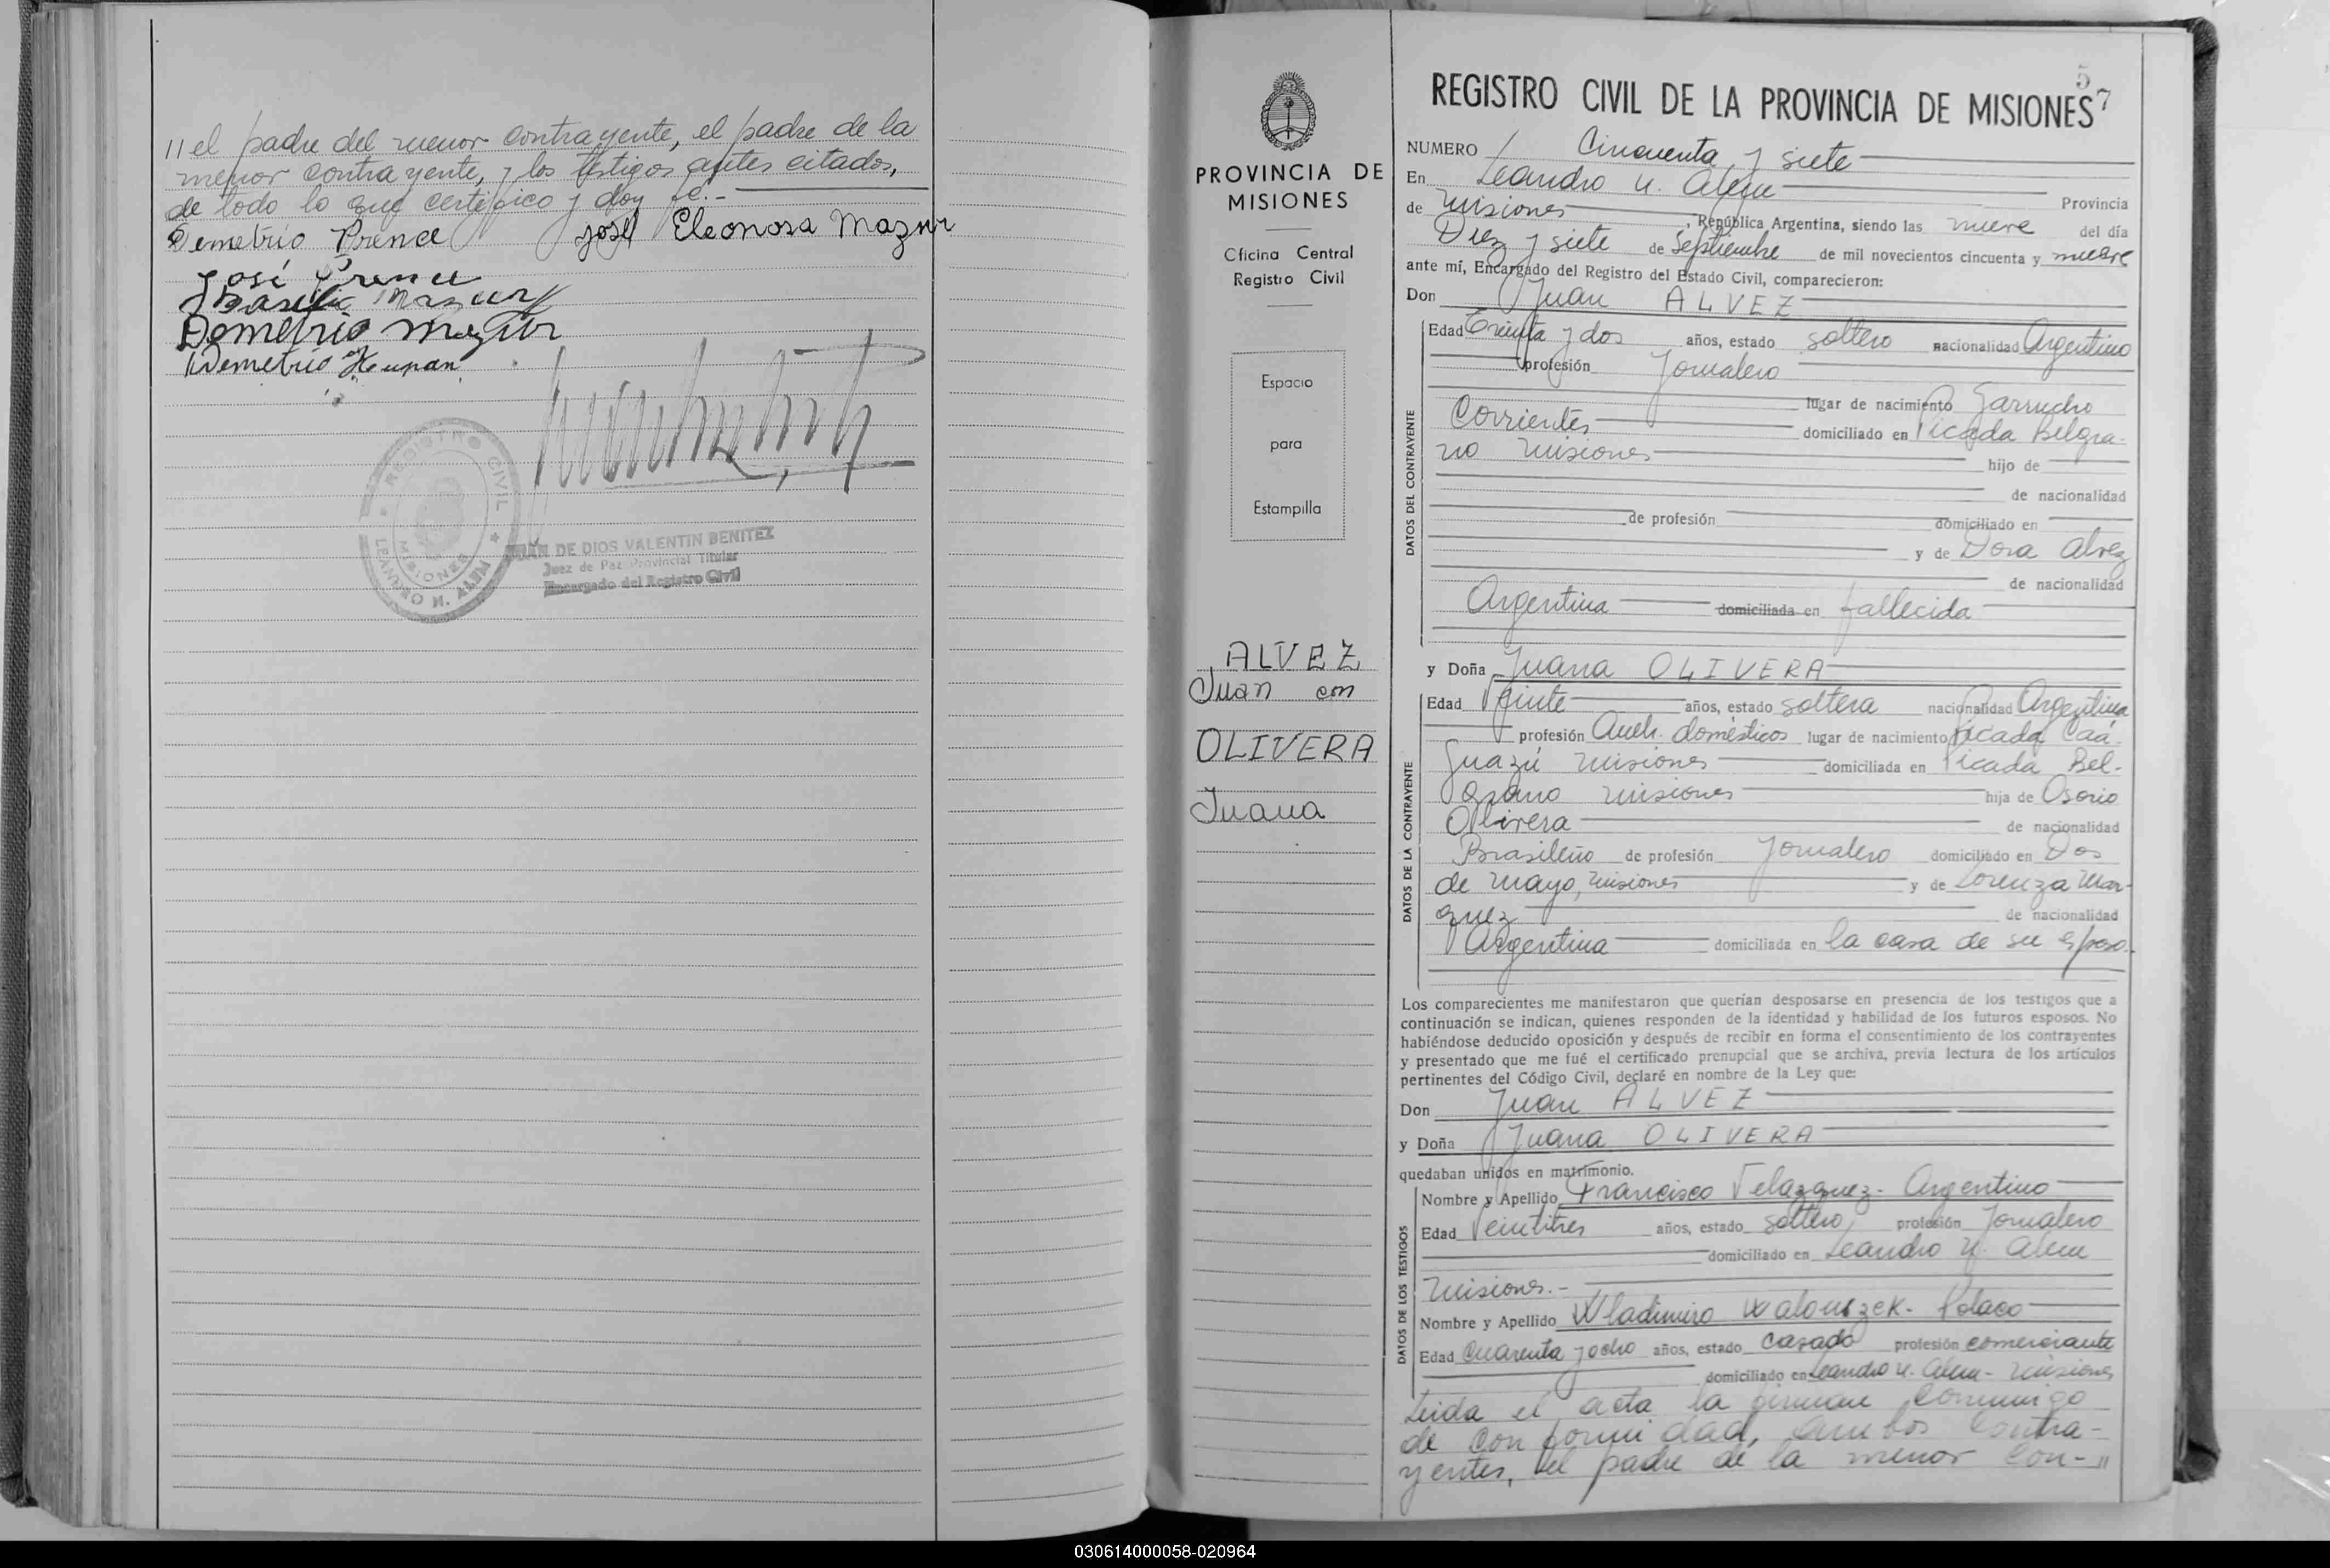 11 el padre del menor contrayente, el padre de la
menor contrayente, y los testigos antes citados,
de todo lo que certifico y doy fé.-
Demetrio Prence José Eleonora Mazur
José Prence
Basilio Mazur
Demetrio Mazur
Demetrio Hupan
REGISTRO CIVIL
LEANDRO N. ALEM
MISIONES
JUAN DE DIOS VALENTIN BENITEZ
Juez de Paz Provincial Titular
Encargado del Registro Civil
PROVINCIA DE
MISIONES
Oficina Central
Registro Civil
Espacio
para
Estampilla
ALVEZ
Juan con
OLIVERA
Juana
57
REGISTRO CIVIL DE LA PROVINCIA DE MISIONES
NUMERO Cincuenta y siete
En Leandro N. Alem Provincia
de Misiones, República Argentina, siendo las nueve del día
Diez y siete de Septiembre de mil novecientos cincuenta y nueve
ante mí, Encargado del Registro del Estado Civil, comparecieron:
Don Juan ALVEZ
DATOS DEL CONTRAYENTE
Edad Treinta y dos años, estado soltero nacionalidad Argentino
profesión Jornalero
lugar de nacimiento Garruchos
Corrientes domiciliado en Picada Belgra-
no Misiones hijo de
de nacionalidad
de profesión domiciliado en
y de Dora Alvez
de nacionalidad
Argentina domiciliada en fallecida
y Doña Juana OLIVERA
DATOS DE LA CONTRAYENTE
Edad Veinte años, estado soltera nacionalidad Argentina
profesión Queh. domésticos lugar de nacimiento Picada Caá-
Guazú Misiones domiciliada en Picada Bel-
grano Misiones hija de Osorio
Olivera de nacionalidad
Brasileño de profesión Jornalero domiciliado en Dos
de Mayo, Misiones y de Lorenza Mar-
quez de nacionalidad
Argentina domiciliada en la casa de su esposo.
Los comparecientes me manifestaron que querían desposarse en presencia de los testigos que a
continuación se indican, quienes responden de la identidad y habilidad de los futuros esposos. No
habiéndose deducido oposición y después de recibir en forma el consentimiento de los contrayentes
y presentado que me fué el certificado prenupcial que se archiva, previa lectura de los artículos
pertinentes del Código Civil, declaré en nombre de la Ley que:
Don Juan ALVEZ
y Doña Juana OLIVERA
quedaban unidos en matrimonio.
DATOS DE LOS TESTIGOS
Nombre y Apellido Francisco Velazquez- Argentino
Edad Veintitres años, estado soltero profesión Jornalero
domiciliado en Leandro N. Alem
Misiones.-
Nombre y Apellido Wladimiro Walouszek- Polaco
Edad Cuarenta y ocho años, estado casado profesión comerciante
domiciliado en Leandro N. Alem- Misiones
Leida el acta la firman conmigo
de conformidad, ambos contra-
yentes, el padre de la menor con-11
030614000058-020964